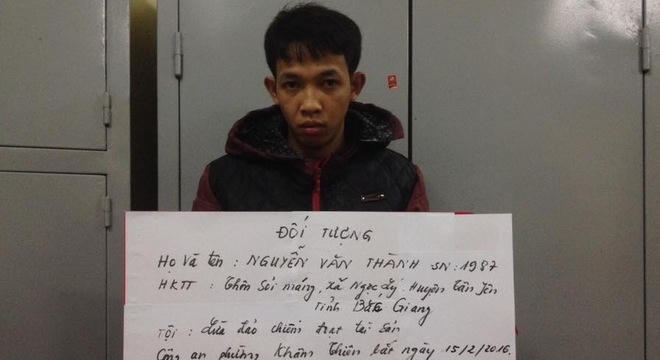 ĐỐI TƯỢNG
Họ và tên : NGUYỄN VĂN THÀNH SN: 1987
HKTT : Thôn Sỏi máng, xã Ngọc Lý, Huyện Tân Yên
Tỉnh Bắc Giang
Tội : Lừa đảo chiếm đoạt tài sản
Công an phường Khâm Thiên bắt ngày 15/2/2016.